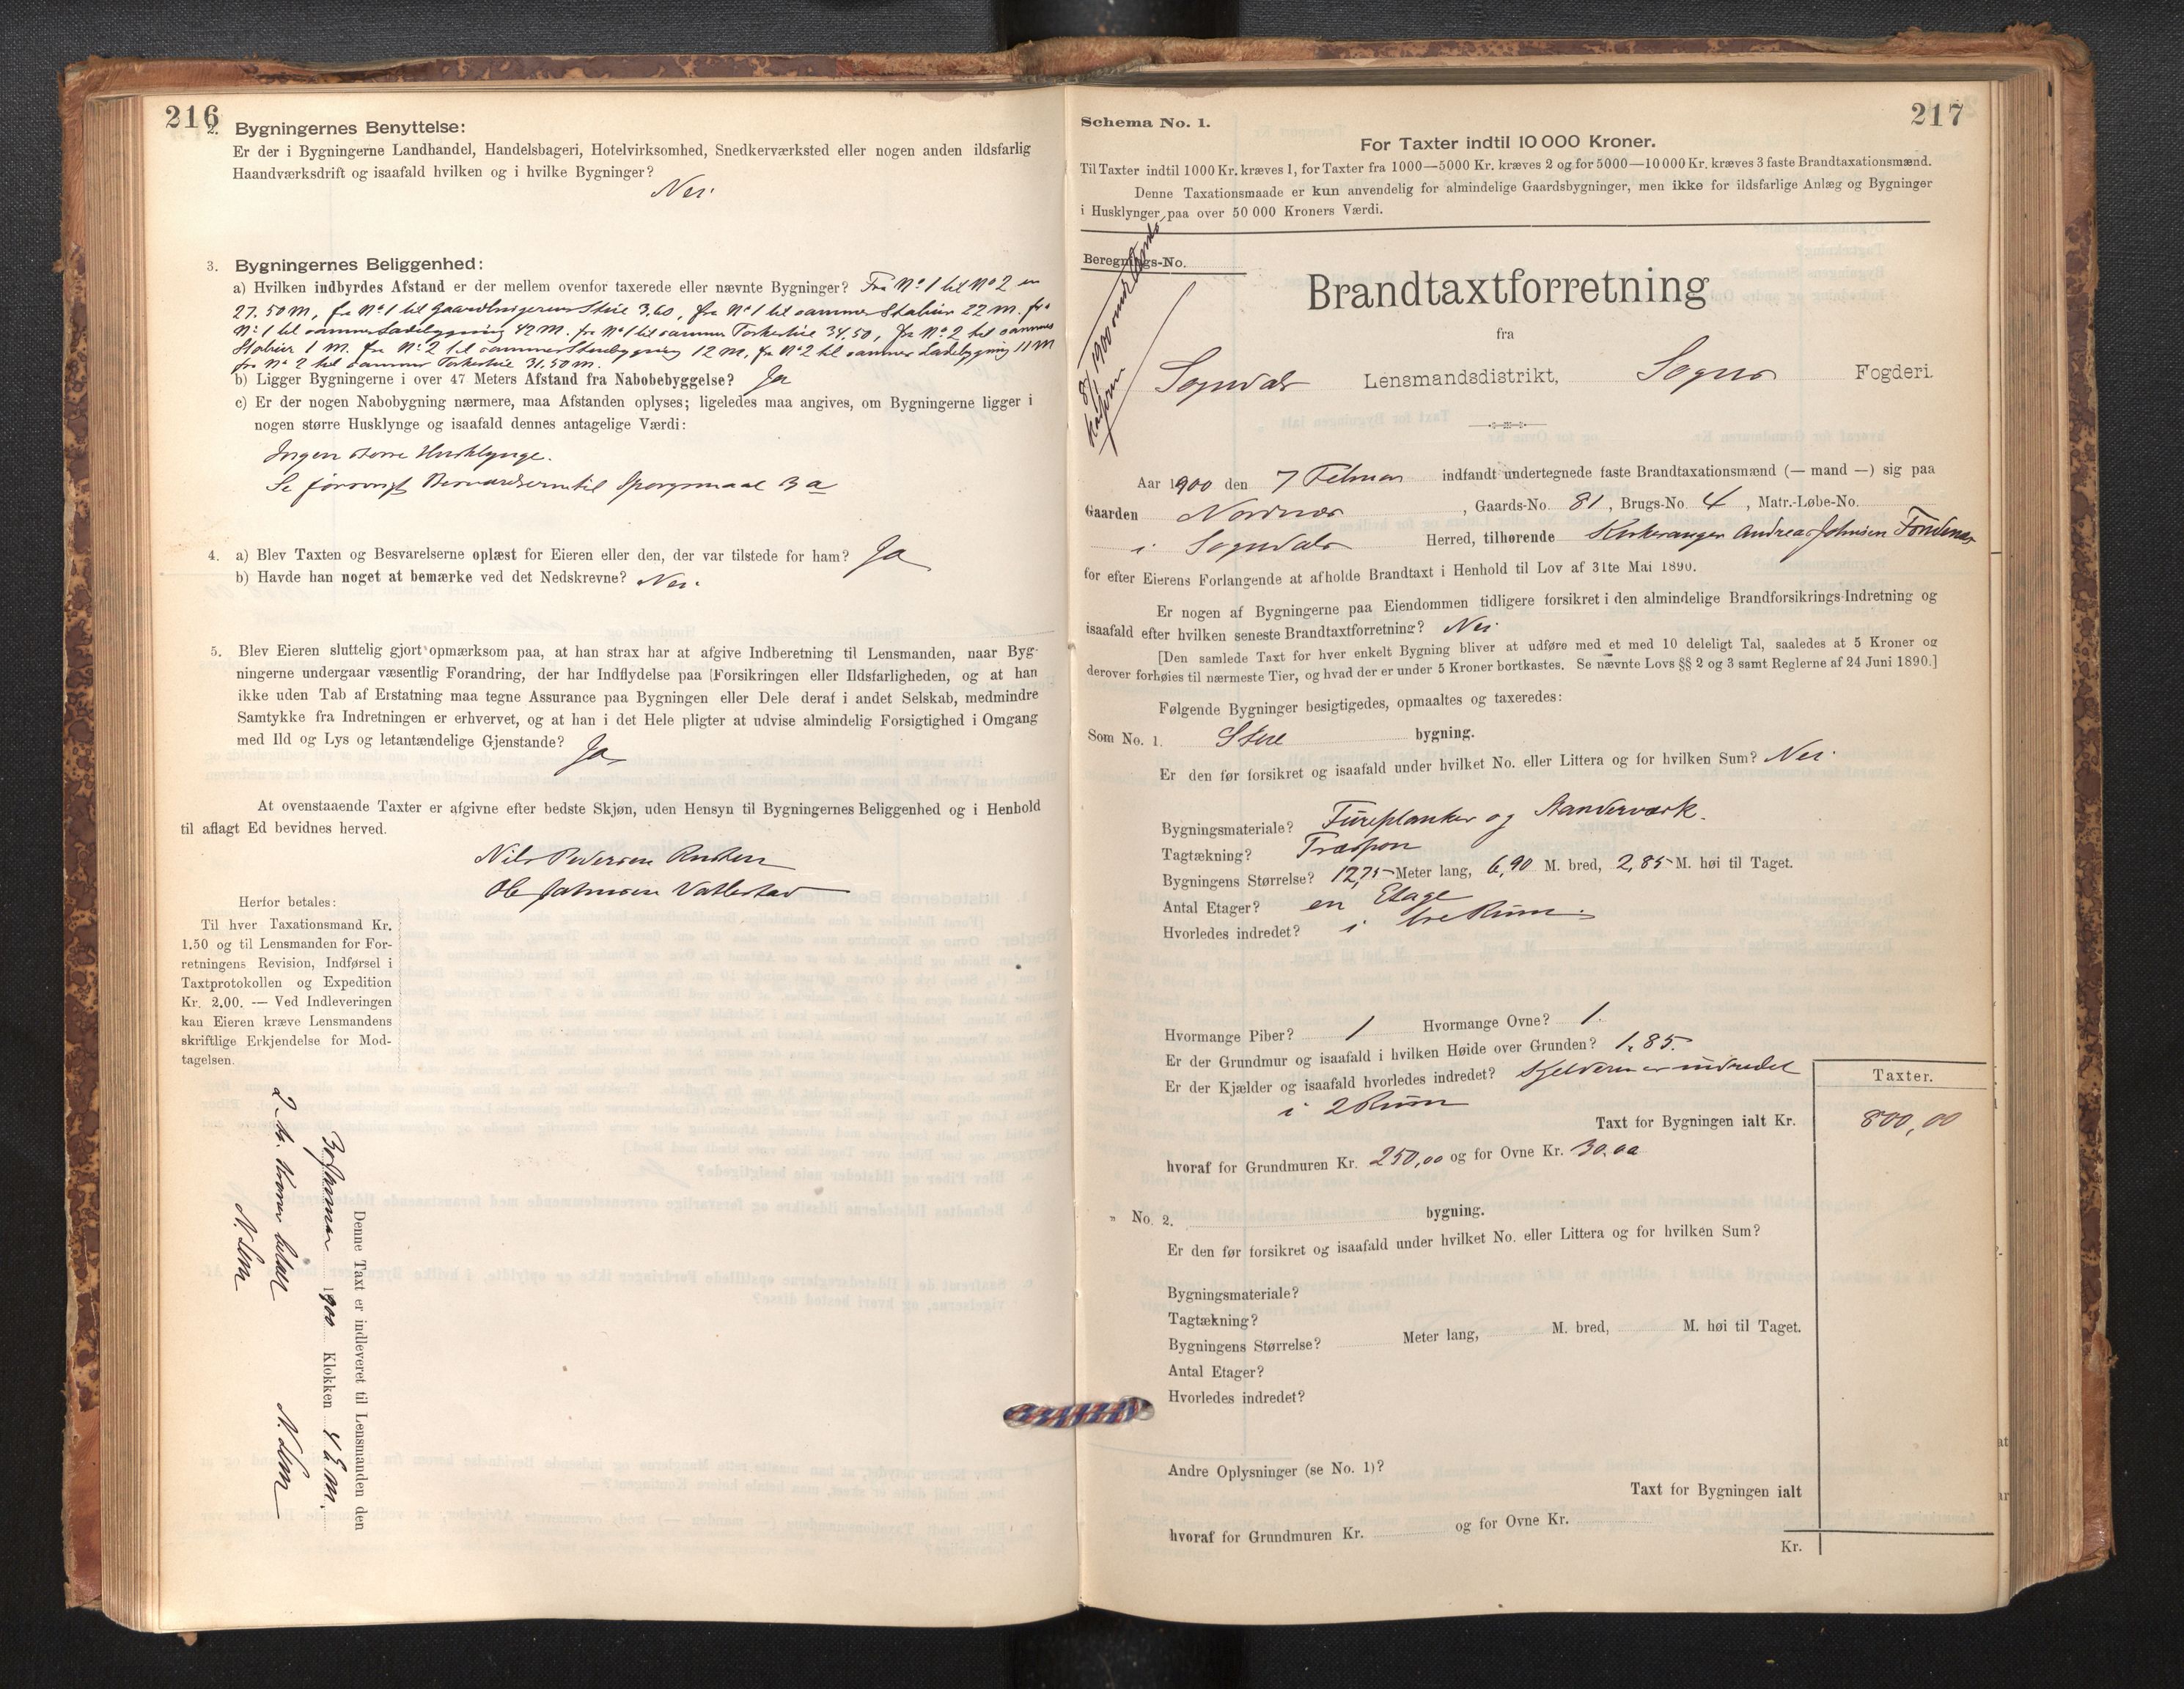 216
2. Bygningernes Benyttelse:
Er der i Bygningerne Landhandel, Handelsbageri, Hotelvirksomhed, Snedkerværksted eller nogen anden ildsfarlig
Haandværksdrift og isaafald hvilken og i hvilke Bygninger?
Nei.
3. Bygningernes Beliggenhed:
a) Hvilken indbyrdes Afstand er der mellem ovenfor taxerede eller nævnte Bygninger? Fra No 1 til No 2 er
27.50 M, fra No 1 til Gaardbrugerens Stue 3,60, fra No 1 til sammes Stabur 22 M. fra
No 1 til sammes Ladebygning 42 M. fra No 1 til sammes Torkestue 34,50, fra No 2 til sammes
Stabur 1 M. fra No 2 til sammes Stuebygning 12 M, fra No 2 til sammes Ladebygning 11 M
fra No 2 til sammes Torkestue 31,50 M.
b) Ligger Bygningerne i over 47 Meters Afstand fra Nabobebyggelse? Ja
c) Er der nogen Nabobygning nærmere, maa Afstanden oplyses; ligeledes maa angives, om Bygningerne ligger i
nogen større Husklynge og isaafald dennes antagelige Værdi:
Ingen større Husklynge.
Se forøvrigt Besvarelserne til Spørgsmaal 3 a
4. a) Blev Taxten og Besvarelserne oplæst for Eieren eller den, der var tilstede for ham? Ja
b) Havde han noget at bemærke ved det Nedskrevne? Nei.
5. Blev Eieren sluttelig gjort opmærksom paa, at han strax har at afgive Indberetning til Lensmanden, naar Byg-
ningerne undergaar væsentlig Forandring, der har Indflydelse paa Forsikringen eller Ildsfarligheden, og at han
ikke uden Tab af Erstatning maa tegne Assurance paa Bygningen eller Dele deraf i andet Selskab, medmindre
Samtykke fra Indretningen er erhvervet, og at han i det Hele pligter at udvise almindelig Forsigtighed i Omgang
med Ild og Lys og letantændelige Gjenstande? Ja
At ovenstaaende Taxter er afgivne efter bedste Skjøn, uden Hensyn til Bygningernes Beliggenhed og i Henhold
til aflagt Ed bevidnes herved.
Nils Pedersen
Ole Johnsen Vatlestad
Herfor betales:
Til hver Taxationsmand Kr.
1.50 og til Lensmanden for For-
retningens Revision, Indførsel i
Taxtprotokollen og Expedition
Kr. 2.00. — Ved Indleveringen
kan Eieren kræve Lensmandens
skriftlige Erkjendelse for Mod-
tagelsen.
Denne Taxt er indleveret til Lensmanden den
1900 Klokken 4 E.m.
2 - to. kroner betalt
217
Schema No. 1.
For Taxter indtil 10 000 Kroner.
Til Taxter indtil 1000 Kr. kræves 1, for Taxter fra 1000—5000 Kr. kræves 2 og for 5000—10 000 Kr. kræves 3 faste Brandtaxationsmænd.
Denne Taxationsmaade er kun anvendelig for almindelige Gaardsbygninger, men ikke for ildsfarlige Anlæg og Bygninger
i Husklynger paa over 50 000 Kroners Værdi.
Beregnings-No.
Brandtaxtforretning
fra
Sogndals Lensmandsdistrikt, Sogns Fogderi.
Aar 1900 den 7 Februar indfandt undertegnede faste Brandtaxationsmænd (— mand —) sig paa
Gaarden Nordnæs, Gaards-No. 81, Brugs-No. 4, Matr.-Løbe-No.
i Sogndals Herred, tilhørende Kirkesanger Andreas Johnsen Fondenæs
for efter Eierens Forlangende at afholde Brandtaxt i Henhold til Lov af 31te Mai 1890.
Er nogen af Bygningerne paa Eiendommen tidligere forsikret i den almindelige Brandforsikrings-Indretning og
isaafald efter hvilken seneste Brandtaxtforretning? Nei
[Den samlede Taxt for hver enkelt Bygning bliver at udføre med et med 10 deleligt Tal, saaledes at 5 Kroner og
derover forhøies til nærmeste Tier, og hvad der er under 5 Kroner bortkastes. Se nævnte Lovs §§ 2 og 3 samt Reglerne af 24 Juni 1890.]
Følgende Bygninger besigtigedes, opmaaltes og taxeredes:
Som No. 1. Stue bygning.
Er den før forsikret og isaafald under hvilket No. eller Littera og for hvilken Sum? Nei.
Bygningsmateriale? Fureplanker og Standerværk.
Tagtækning? Træspon
Bygningens Størrelse? 12,75 Meter lang, 6,90 M. bred, 2,85 M. høi til Taget.
Antal Etager? en Etage
Hvorledes indredet? i tre Rum.
Hvormange Piber? 1 Hvormange Ovne? 1.
Er der Grundmur og isaafald i hvilken Høide over Grunden? 1,85.
Er der Kjælder og isaafald hvorledes indredet? Kjelderen er indredet
i 2 Rum
Taxter.
Taxt for Bygningen ialt Kr. 800,00
hvoraf for Grundmuren Kr. 250,00 og for Ovne Kr. 30,00
" No. 2. bygning.
Er den før forsikret og isaafald under hvilket No. eller Littera og for hvilken Sum?
Bygningsmateriale?
Tagtækning?
Bygningens Størrelse? Meter lang, M. bred, M. høi til Taget.
Antal Etager?
Hvorledes indredet?
Andre Oplysninger (se No. 1)?
Taxt for Bygningen ialt
hvoraf for Grundmuren Kr. og for Ovne Kr.
Kr.